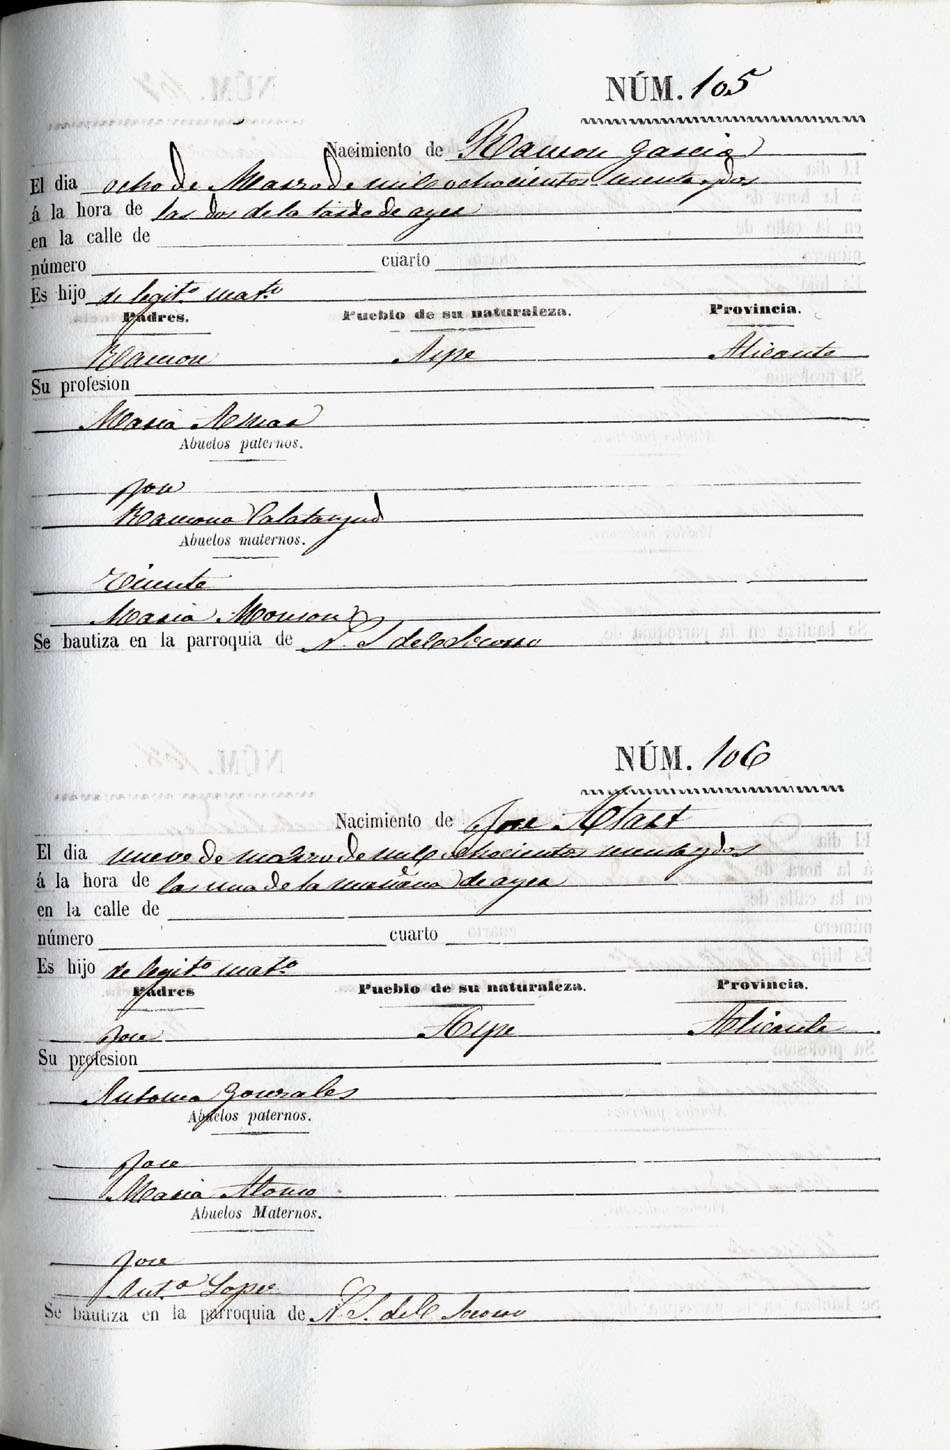 NÚM. 105
Nacimiento de Ramon Garcia
El dia ocho de Marzo de mil ochocientos y dos
á la hora de las dos de la tarde de ayer
en la calle de
número cuarto
Es hijo de legit.º mat.º
Padres. Pueblo de su naturaleza. Provincia.
Ramon Aspe Alicante
Su profesion
Maria
Abuelos paternos.
Jose
Ramona Calatayud
Abuelos maternos.
Vicente
Maria Monzon
Se bautiza en la parroquia de N. S. del Socorro
NÚM. 106
Nacimiento de Jose
El dia nueve de marzo de mil ochocientos y dos
á la hora de las una de la mañana de ayer
en la calle de
número cuarto
Es hijo de legit.º mat.º
Padres Pueblo de su naturaleza. Provincia.
Jose Aspe Alicante
Su profesion
Antonia Gonzales
Abuelos paternos.
Jose
Maria Alonso
Abuelos Maternos.
Jose
Ant.ª Lopez
Se bautiza en la parroquia de N. S. del Socorro